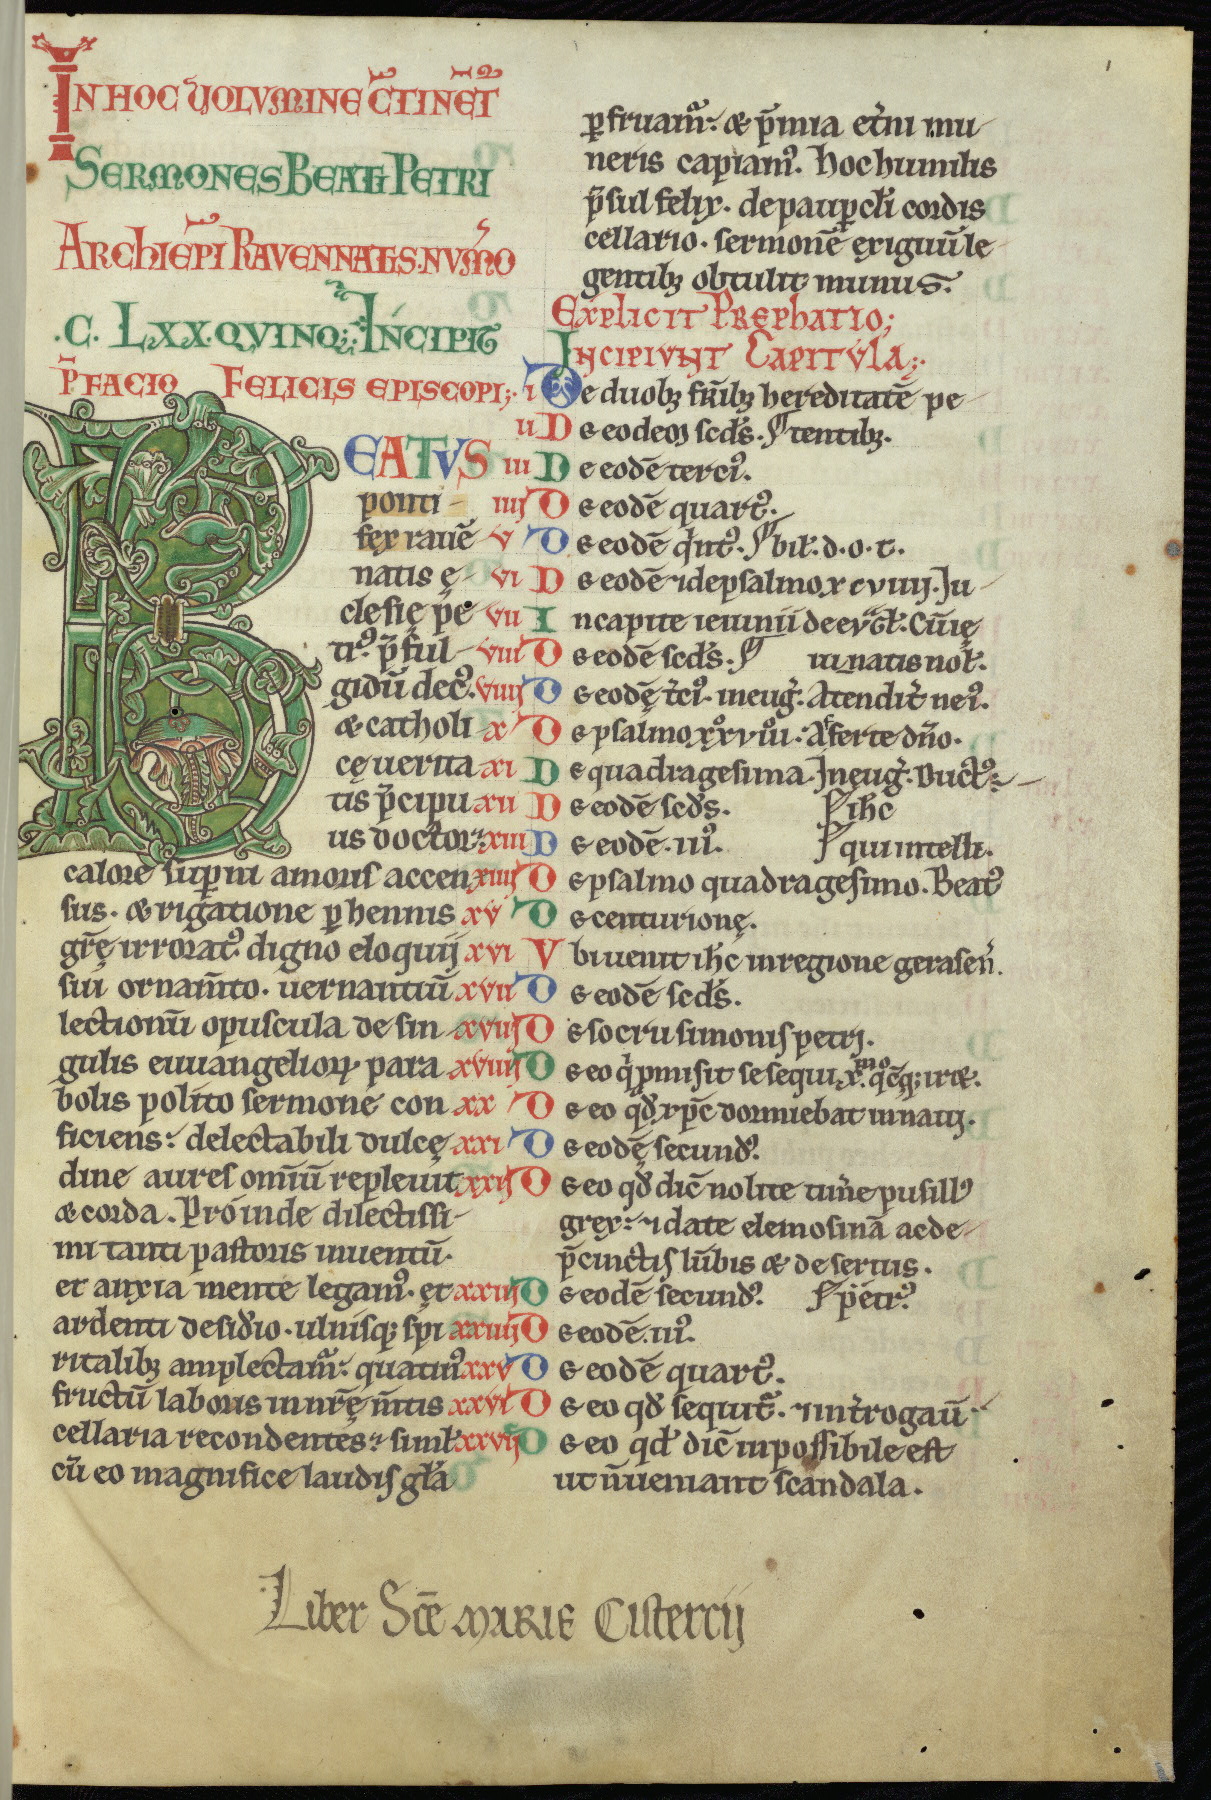 IN HOC VOLVMINE C̄TINĒT᷑
SERMONES BEATI PETRI
ARCHIEP̄I RAVENNATIS. NVM̄O
.C. LXX. QVINQ;: INCIPIT
P̄FACIO FELICIS EPISCOPI;.
BEATUS
ponti-
fex rauē
natis ę-
clesie pe
tr᷒ p̄sul
gidū dec᷒.
& catholi
cę uerita
tis p̄cipu
us doctor:
calore suꝑni amoris accen
sus. & rigatione ꝑhennis
gr̄ę irrorat᷒. digno eloquij
sui ornam̄to. uernantiū
lectionū opuscula de sin
gulis euuangelioꝝ para
bolis polito sermone con
ficiens: delectabili dulcę
dine aures omīū repleuit
& corda. Proinde dilectissi-
mi tanti pastoris inuentū.
et anxia mente legam᷒. et
ardenti desid̓io. ulnisq; spi
ritalib; amplectam᷑: quatin᷒
fructū laboris in nr̄ę m̄tis
cellaria recondentes: simł
cū eo magnifice laudis gła
ꝑfruam᷑: & p̄mia et̓ni mu
neris capiam᷒. hoc humilis
p̄sul felix. de pauꝑcłi cordis
cellario. sermonē exiguū le
gentib; obtulit munus.
EXPLICIT PREPHATIO;
INCIPIVNT CAPITVLA;.
i De duob; fr̄ib; hereditatē pe
ii De eodem scd̓s. tentib;.
iii De eodē terci᷒.
iiij De eodē quart᷒.
v De eodē q̓nt᷒. bił. d. o. t.
vi De eodē ⁊ de psalmo xcviiij. Iu
vii In capite ieiunii de evgł. Cū ię
viii De eodē scd̓s. iunatis noł.
viiij De eodę t̓ci᷒. in eug̓. Atendit̓ nei᷒.
x De psalmo xxviii. Afferte dn̄o.
xi De quadragesima. In eug̓. Duct᷒:
xii De eodē scd̓s. ihc
xiii De eodē. iii᷒. qui intelli.
xiiij De psalmo quadragesimo. Beat᷒
xv De centurionę.
xvi Vbi uenit ih̄c in regione gerasen̓.
xvii De eodē scd̓s.
xviij De socru simonis petrj.
xviiij De eo q̓ ꝓmisit se sequi xp̄m q̄cq; iret.
xx De eo qđ xp̄c dormiebat in naui.
xxi De eodę secund᷒.
xxij De eo qđ dic̄ nolite tim̓e pusill᷒
grex: ⁊ date elemosinā ac de
p̄cinctis lūbis & de seruis.
xxiij De eodē secund᷒. petr᷒.
xxiiij De eodē. iii᷒.
xxv De eodē quart᷒.
xxvi De eo qđ sequit᷑. ⁊ int̓rogaū
xxvij De eo qđ dic̄ inpossibile est
ut n̄ ueniant scandala.
Liber Sc̄e MARIE Cistercij